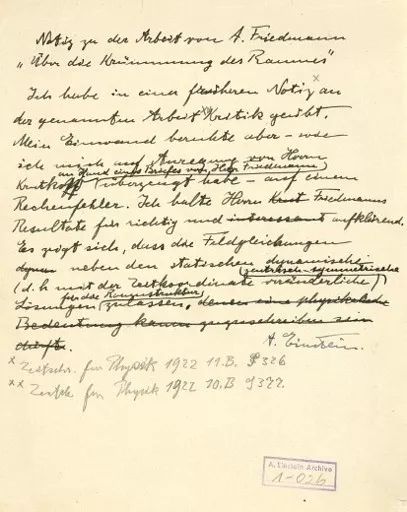 Notiz zu der Arbeit von A. Friedmann
„Über die Krümmung des Raumes"
Ich habe in einer früheren Notiz x an
der genannten Arbeit xx Kritik geübt.
Mein Einwand beruhte aber – wie
ich mich auf Anregung von Herrn
an Hand eines Briefes von Herrn Friedmann
Krutkoff überzeugt habe – auf einem
Rechenfehler. Ich halte Herrn Friedmanns
Resultate für richtig und interessant aufklärend.
Es zeigt sich, dass die Feldgleichungen
dyna neben den statischen dynamische
zentrisch-symmetrische
(d. h. mit der Zeitkoordinate veränderliche)
für die Raumstruktur
Lösungen zulassen, denen eine physikalische
Bedeutung kaum zuzuschreiben sein
dürfte.
A. Einstein.
x Zeitschr. für Physik 1922 11.B. S 326
xx Zeitschr. für Physik 1922 10.B S 377.
A. Einstein Archive
1-026